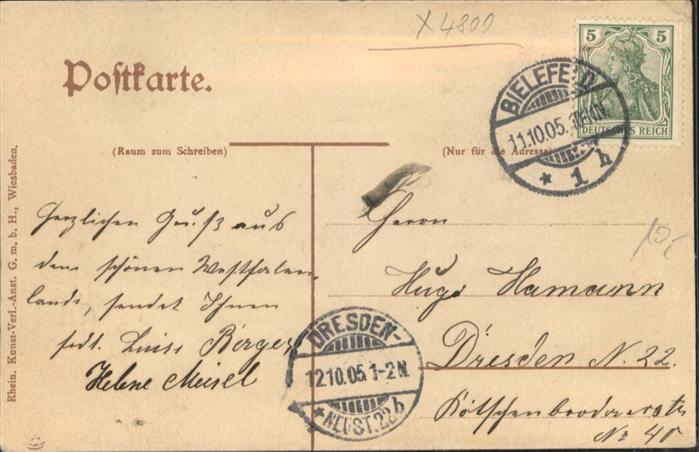 X 4800
Postkarte.
5 5
DEUTSCHES REICH
BIELEFELD
11.10.05.
* 1 h
(Raum zum Schreiben)
(Nur für die Adresse)
Rhein. Kunst-Verl.-Anst. G. m. b. H., Wiesbaden.
Herzlichen Gruß aus
dem schönen Westfalen-
lande, sendet Ihnen
Luise Berger
Helene Meisel
Herrn
Hugo Hamann
Dresden N. 22.
Kötschenbrodaerstr
No 40
10,-
DRESDEN-
12.10.05. 1-2 N.
* NEUST. 22 b